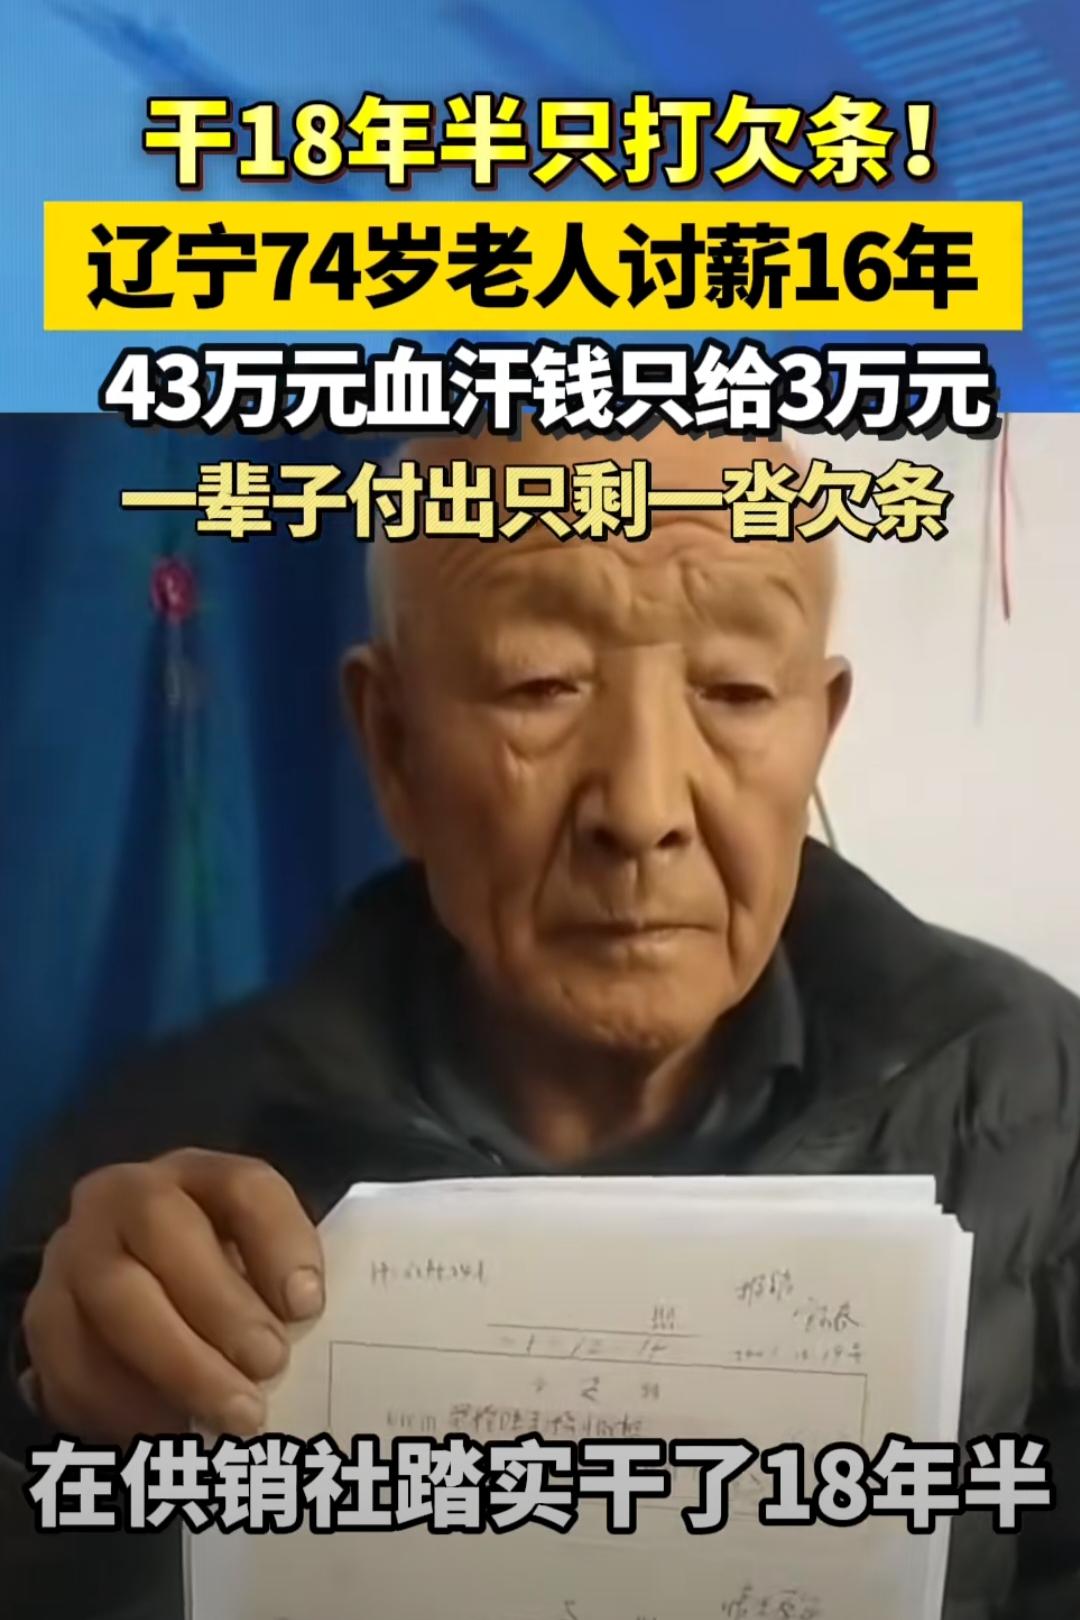 干18年半只打欠条！
辽宁74岁老人讨薪16年
43万元血汗钱只给3万元
一辈子付出只剩一沓欠条
在供销社踏实干了18年半